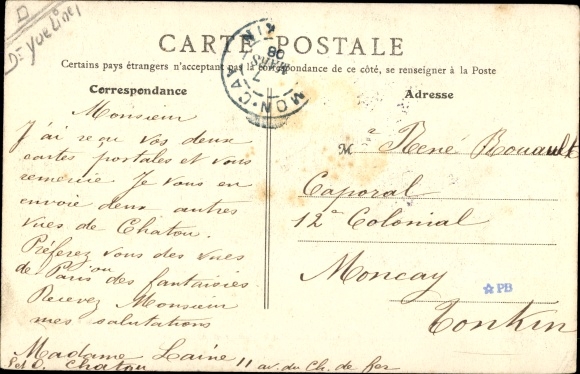 Dr Yvelines
CARTE POSTALE
Certains pays étrangers n'acceptant pas la correspondance de ce côté, se renseigner à la Poste
MON-CAY
7
MARS
08
Correspondance
Monsieur
J'ai reçu vos deux
cartes postales et vous
remercie. Je vous en
envoie deux autres
vues de Chatou.
Préferez vous des vues
de Paris ou des fantaisies
Recevez Monsieur
mes salutations
Madame Lainé 11 av. du Ch. de fer
Set O. Chatou
Adresse
M René Rouault
Caporal
12e Colonial
Moncay
Tonkin
PB